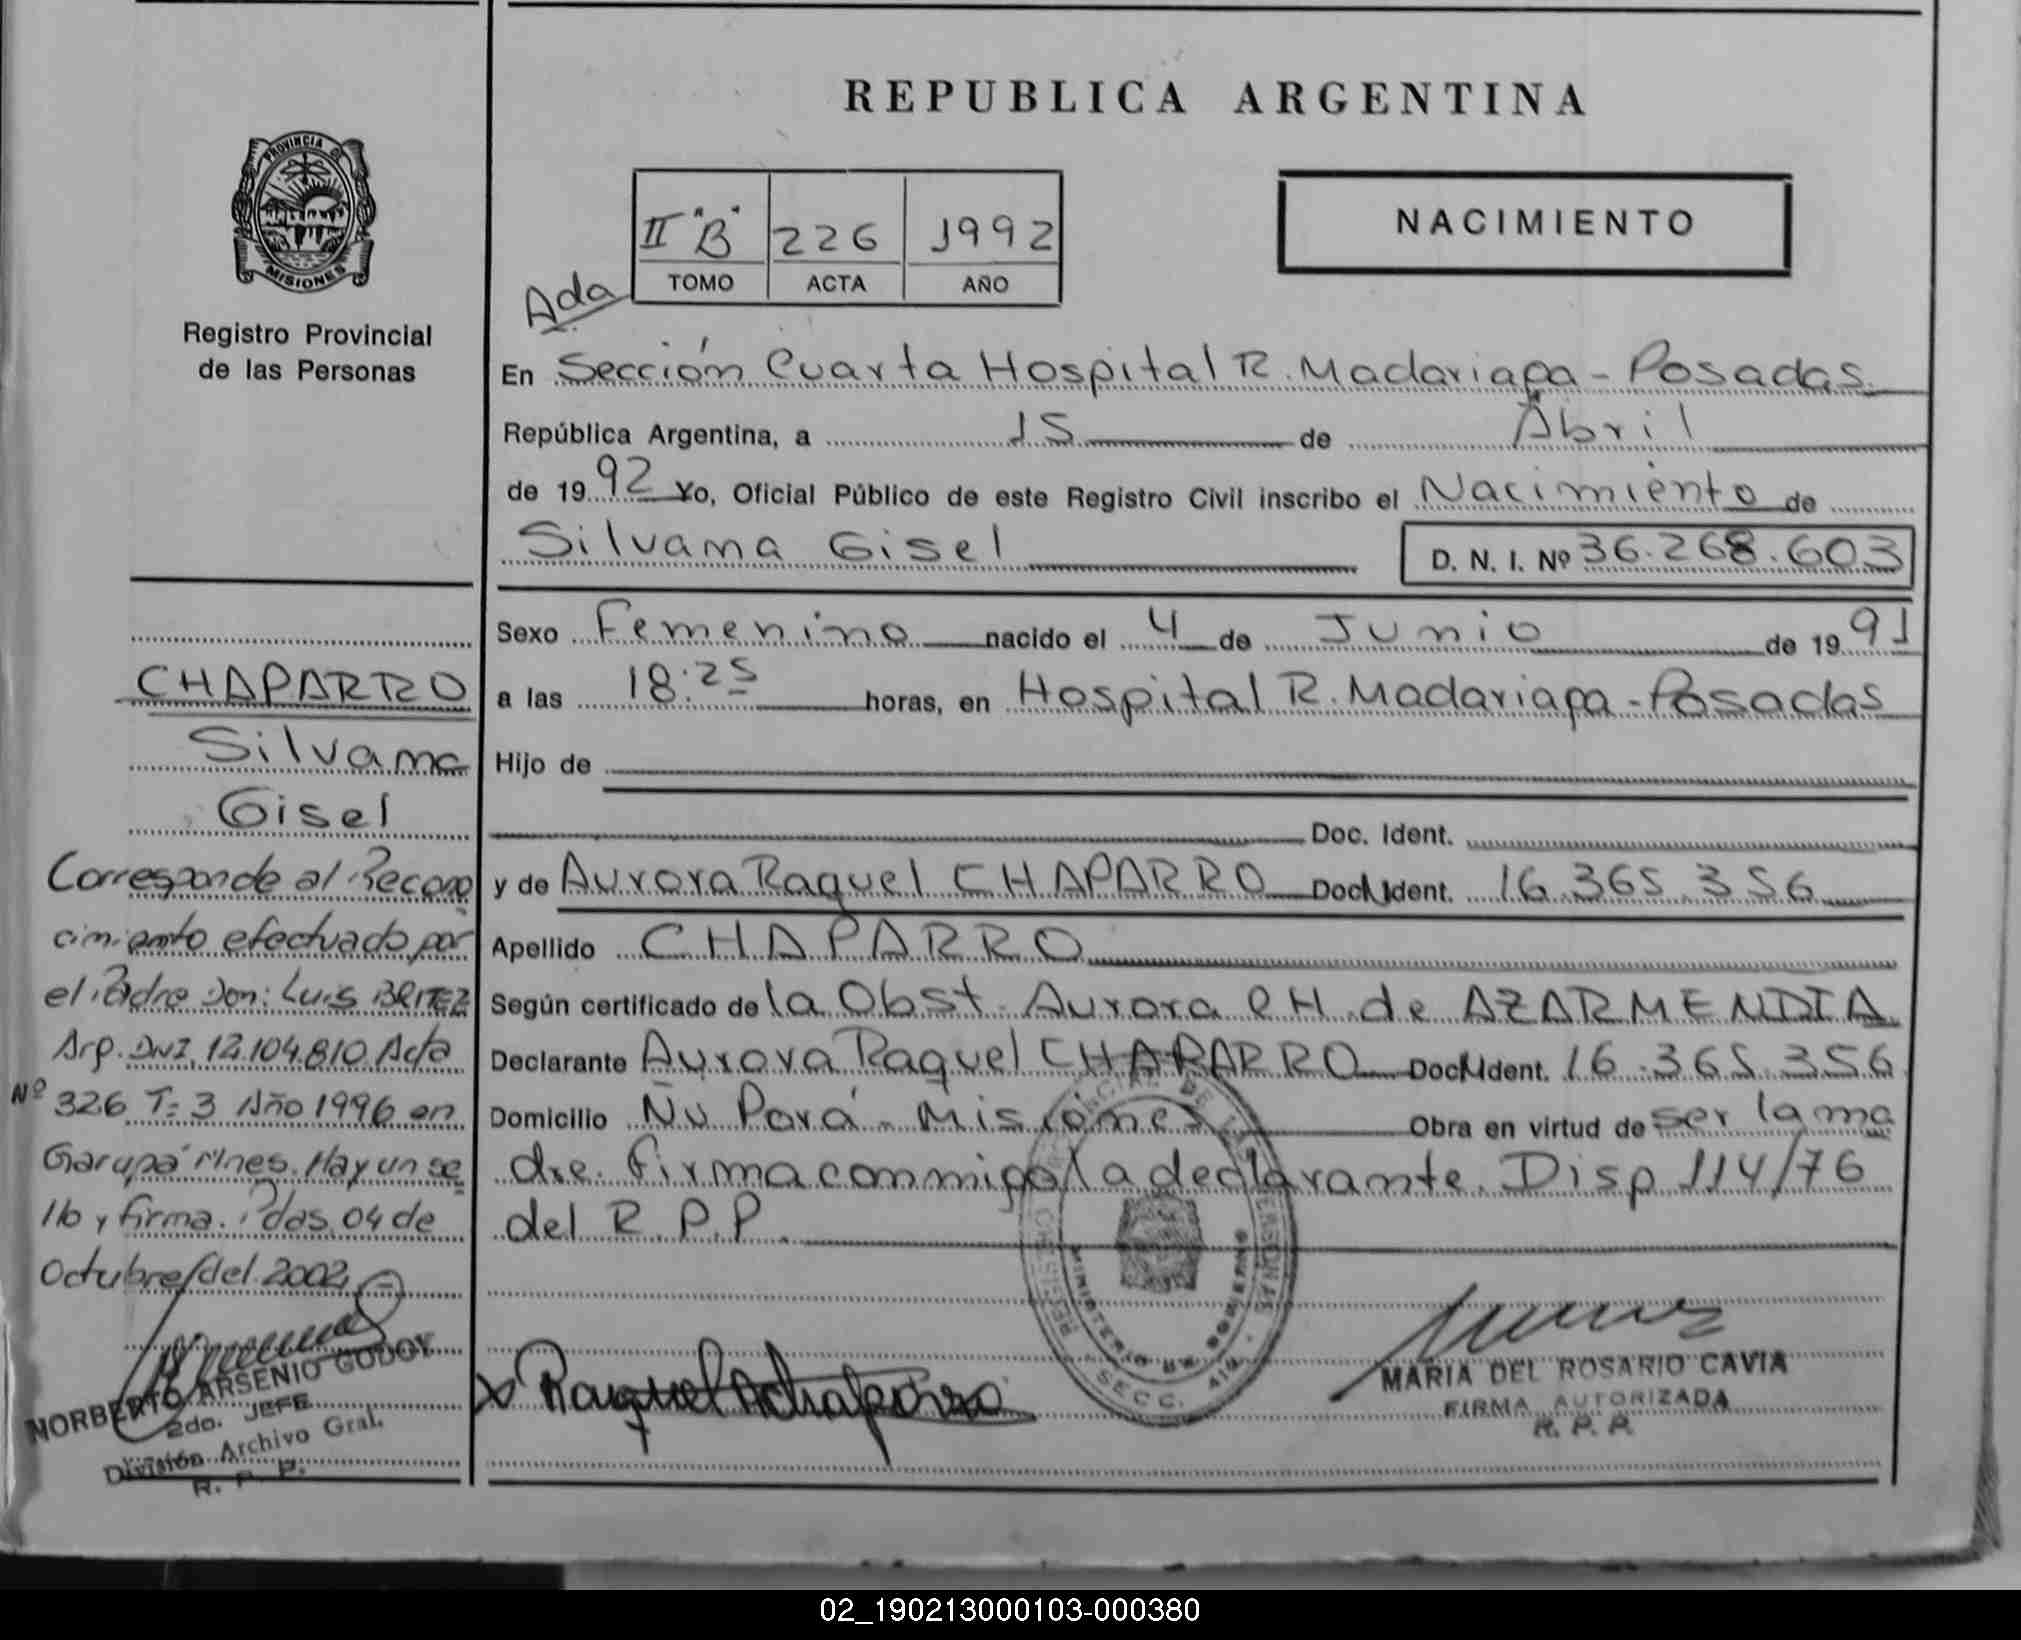 REPUBLICA ARGENTINA
PROVINCIA DE
MISIONES
Registro Provincial
de las Personas
II "B" 226 1992
TOMO ACTA AÑO
NACIMIENTO
Ada
En Sección Cuarta Hospital R. Madariaga - Posadas
República Argentina, a 15 de Abril
de 1992 Yo, Oficial Público de este Registro Civil inscribo el Nacimiento de
Silvana Gisel D. N. I. Nº 36.268.603
Sexo Femenino nacido el 4 de Junio de 1991
a las 18:25 horas, en Hospital R. Madariaga - Posadas
Hijo de
Doc. Ident.
y de Aurora Raquel CHAPARRO Doc. Ident. 16.365.356
Apellido CHAPARRO
Según certificado de la Obst. Aurora CH. de AZARMENDIA
Declarante Aurora Raquel CHAPARRO Doc. Ident. 16.365.356
Domicilio Ñu Porá - Misiones Obra en virtud de ser la ma
dre. Firma conmigo la declarante. Disp 114/76
del R.P.P.
CHAPARRO
Silvana
Gisel
Corresponde al Recono
cimiento efectuado por
el Padre Don: Luis BRITEZ
Arg. DNI, 12.104.810. Acta
Nº 326 T: 3 Año 1996 en
Garupá Mnes. Hay un se
llo y firma. Pdas, 04 de
Octubre del 2002
NORBERTO ARSENIO GODOY
2do. JEFE
División Archivo Gral.
R. P. P.
Raquel A Chaparro
MINISTERIO DE GOBIERNO
SECC. 4ta
MARIA DEL ROSARIO CAVIA
FIRMA AUTORIZADA
R. P. P.
02_190213000103-000380